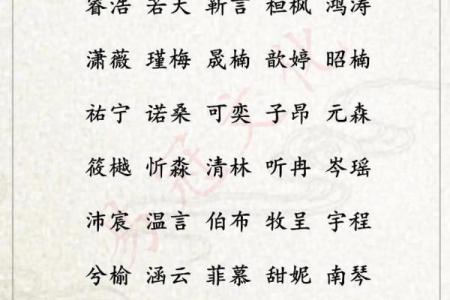 睿浩 若天 靳言 桓枫 鸿涛
潇薇 瑾梅 晟楠 歆婷 昭楠
祐宁 诺桑 可奕 子昂 元森
筱樾 忻淼 清林 听冉 岑瑶
沛宸 温言 伯布 牧呈 宇程
兮榆 涵云 菲慕 甜妮 南琴